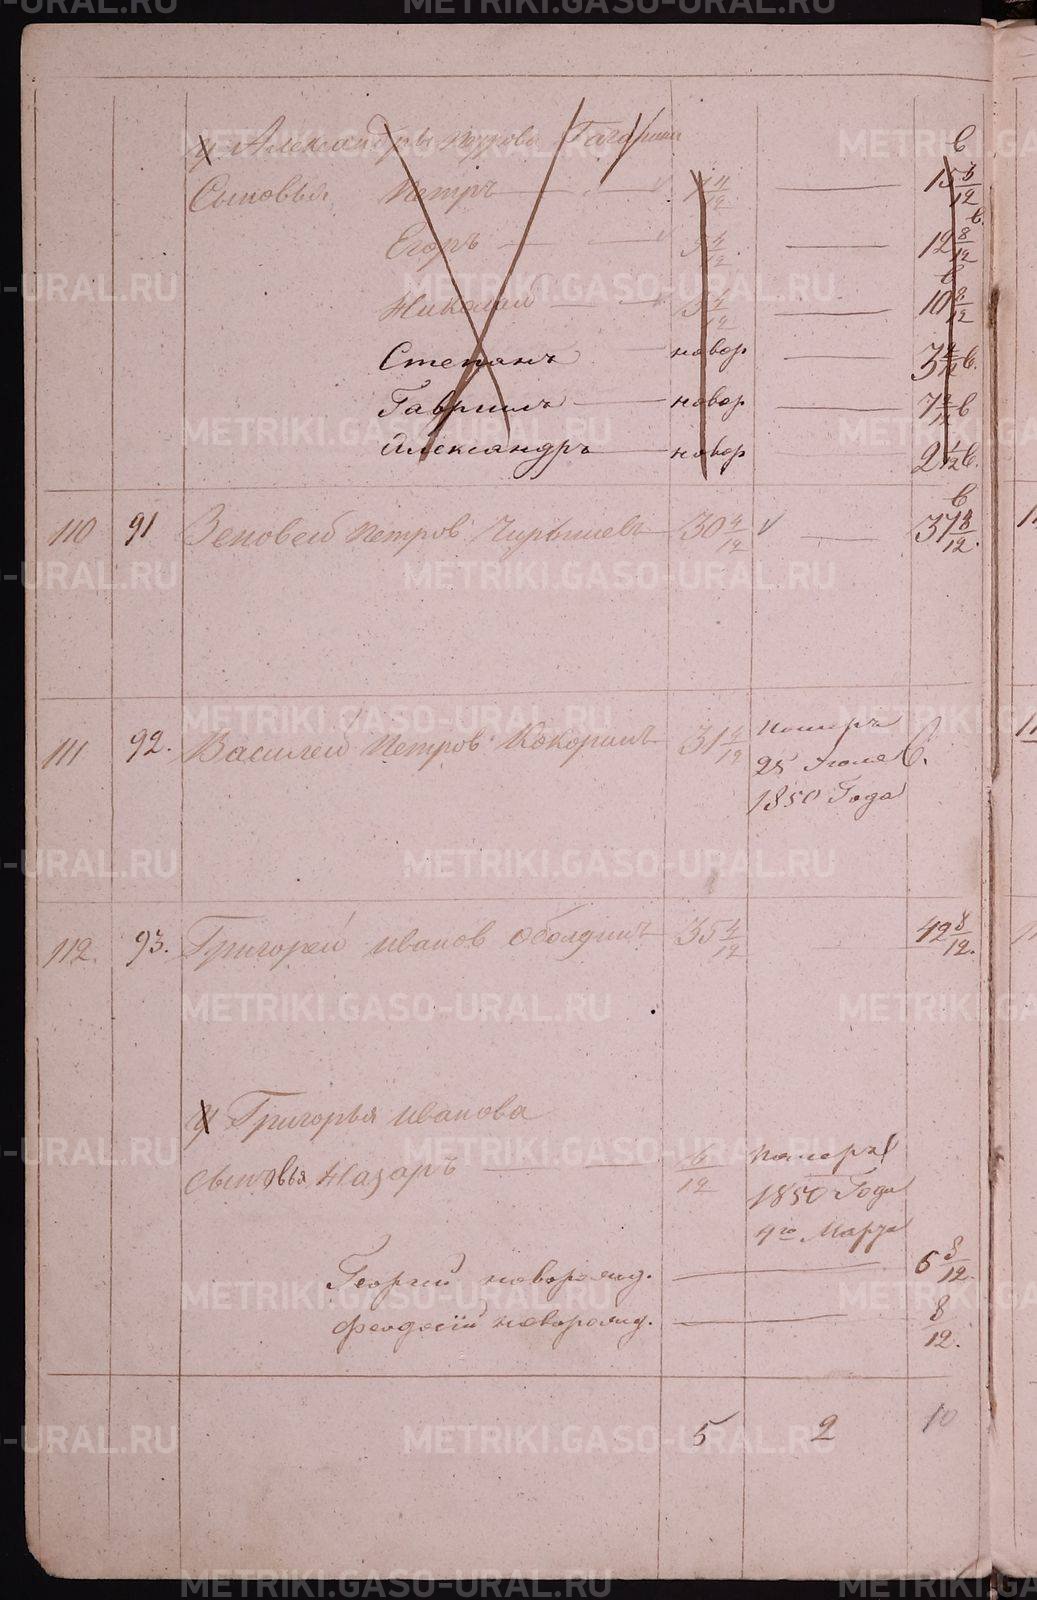 У Александры Петрова Гагарина в
Сыновья Петръ 7 4/12 15 8/12
Егоръ 5 4/12 12 8/12 в.
Николай 3 4/12 10 8/12 в
Степанъ новор 3 в.
Гаврилъ новор 7 в
Александръ новор 2 в.
110 91 Зеновей Петров Чирышевъ 30 4/12 37 8/12. в
111 92. Василей Петров Кокоринъ 31 4/12 Померъ
25 Июля в.
1850 Года
112. 93. Григорей Иванов Оболдинъ 35 4/12 42 8/12.
У Григорья Иванова
Сыновья Назаръ 6/12 Померъ
1850 Года
4го Марта
Георгий новорожд. 6 8/12.
Феодосій новорожд. 8/12.
5 2 10
METRIKI.GASO-URAL.RU